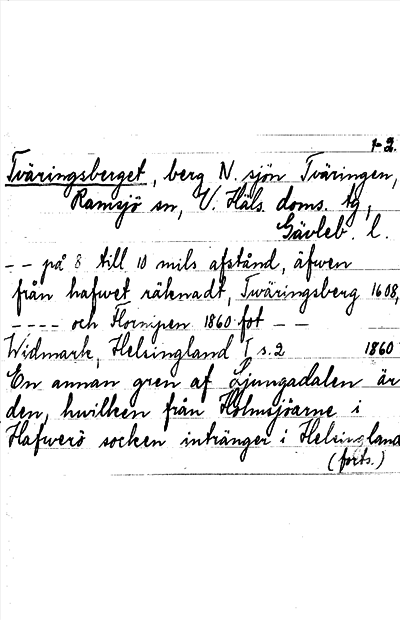 1-2.
Tväringsberget, berg N. sjön Tväringen,
Ramsjö sn, V. Häls. doms. tg,
Gävleb. l.
-- på 8 till 10 mils afstånd, äfwen
från hafwet räknadt, Twäringsberg 1608,
---- och Flornipen 1860 fot --
Widmark, Helsingland I s. 2 1860
En annan gren af Ljungadalen är
den, hwilken från Holmsjöarne i
Hafwerö socken intränger i Helsingland
(forts.)